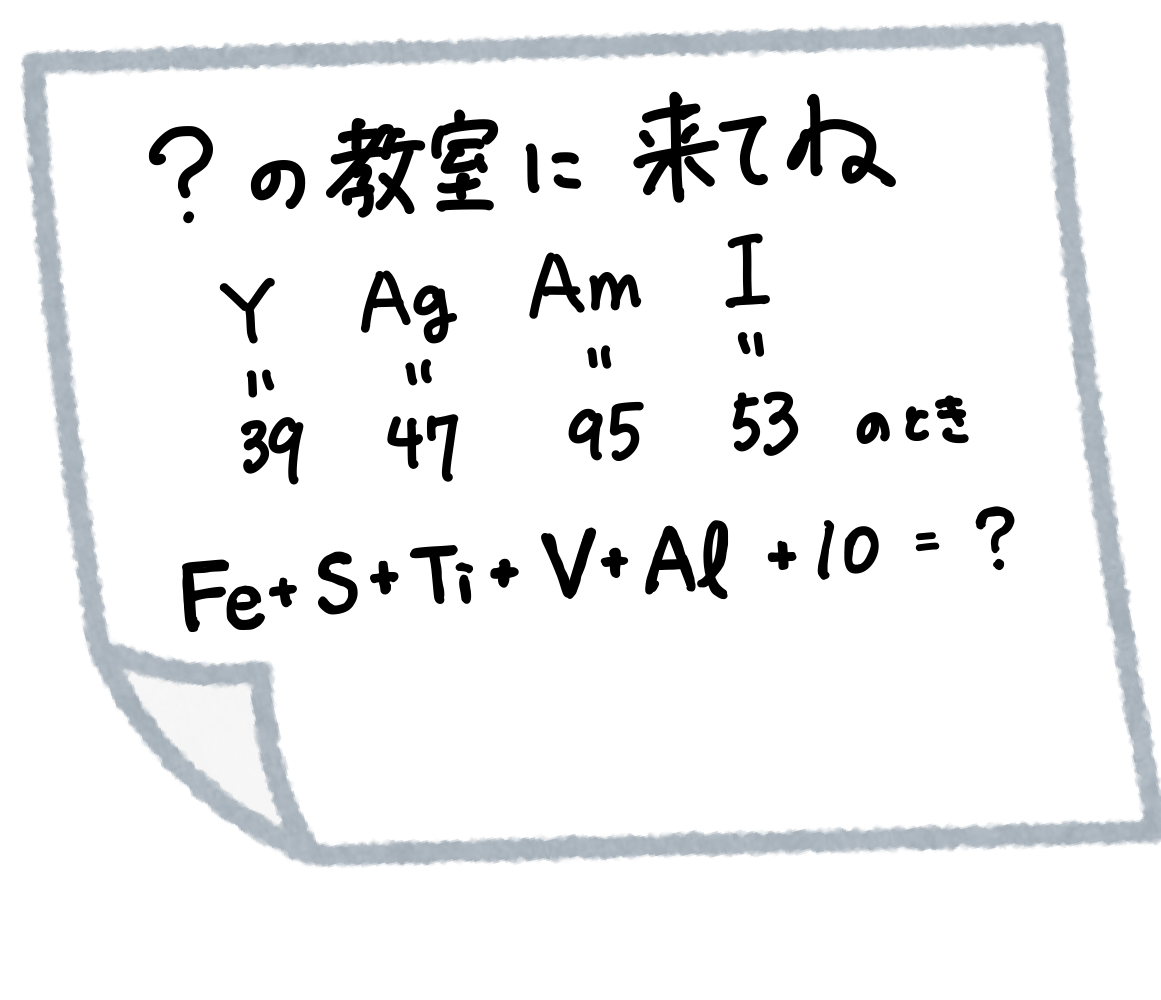 ？の教室に来てね
Y Ag Am I
" " " "
39 47 95 53 のとき
Fe+S+Ti+V+Al+10=?